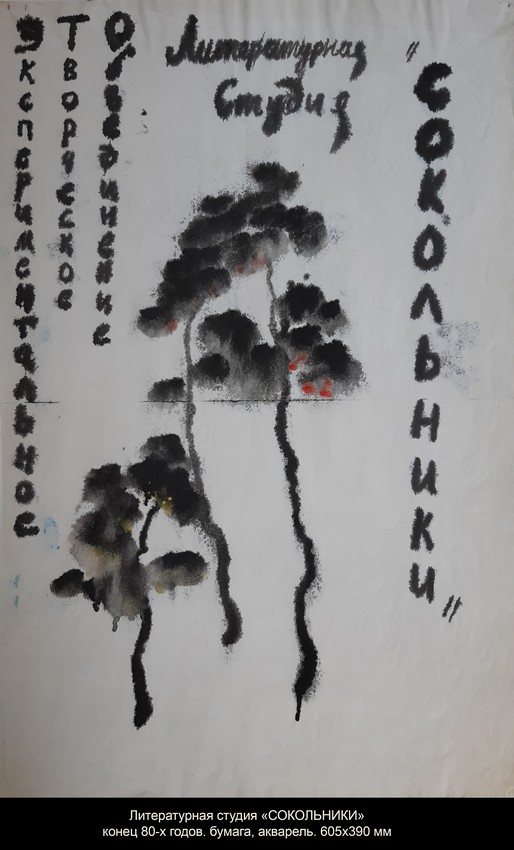 Экспериментальное
Творческое
Объединение
Литературная
Студия
"СОКОЛЬНИКИ"
Литературная студия «СОКОЛЬНИКИ»
конец 80-х годов. бумага, акварель. 605х390 мм